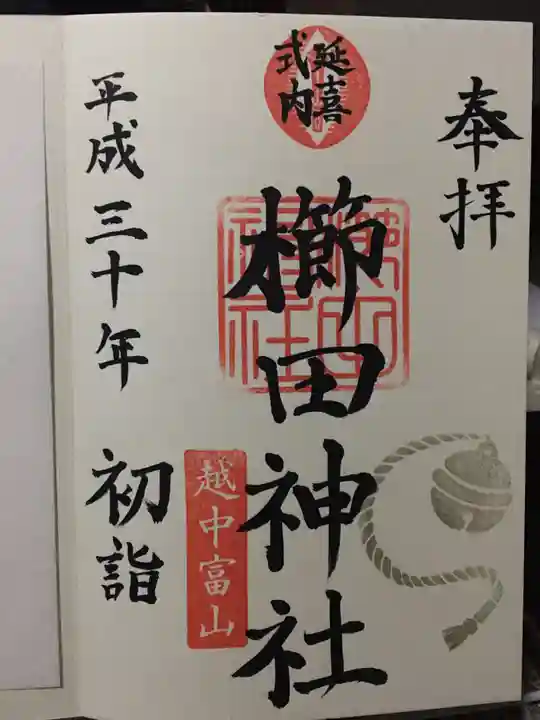 奉拝
延喜
式内
櫛田神社
櫛田
神社
越中富山
平成三十年 初詣